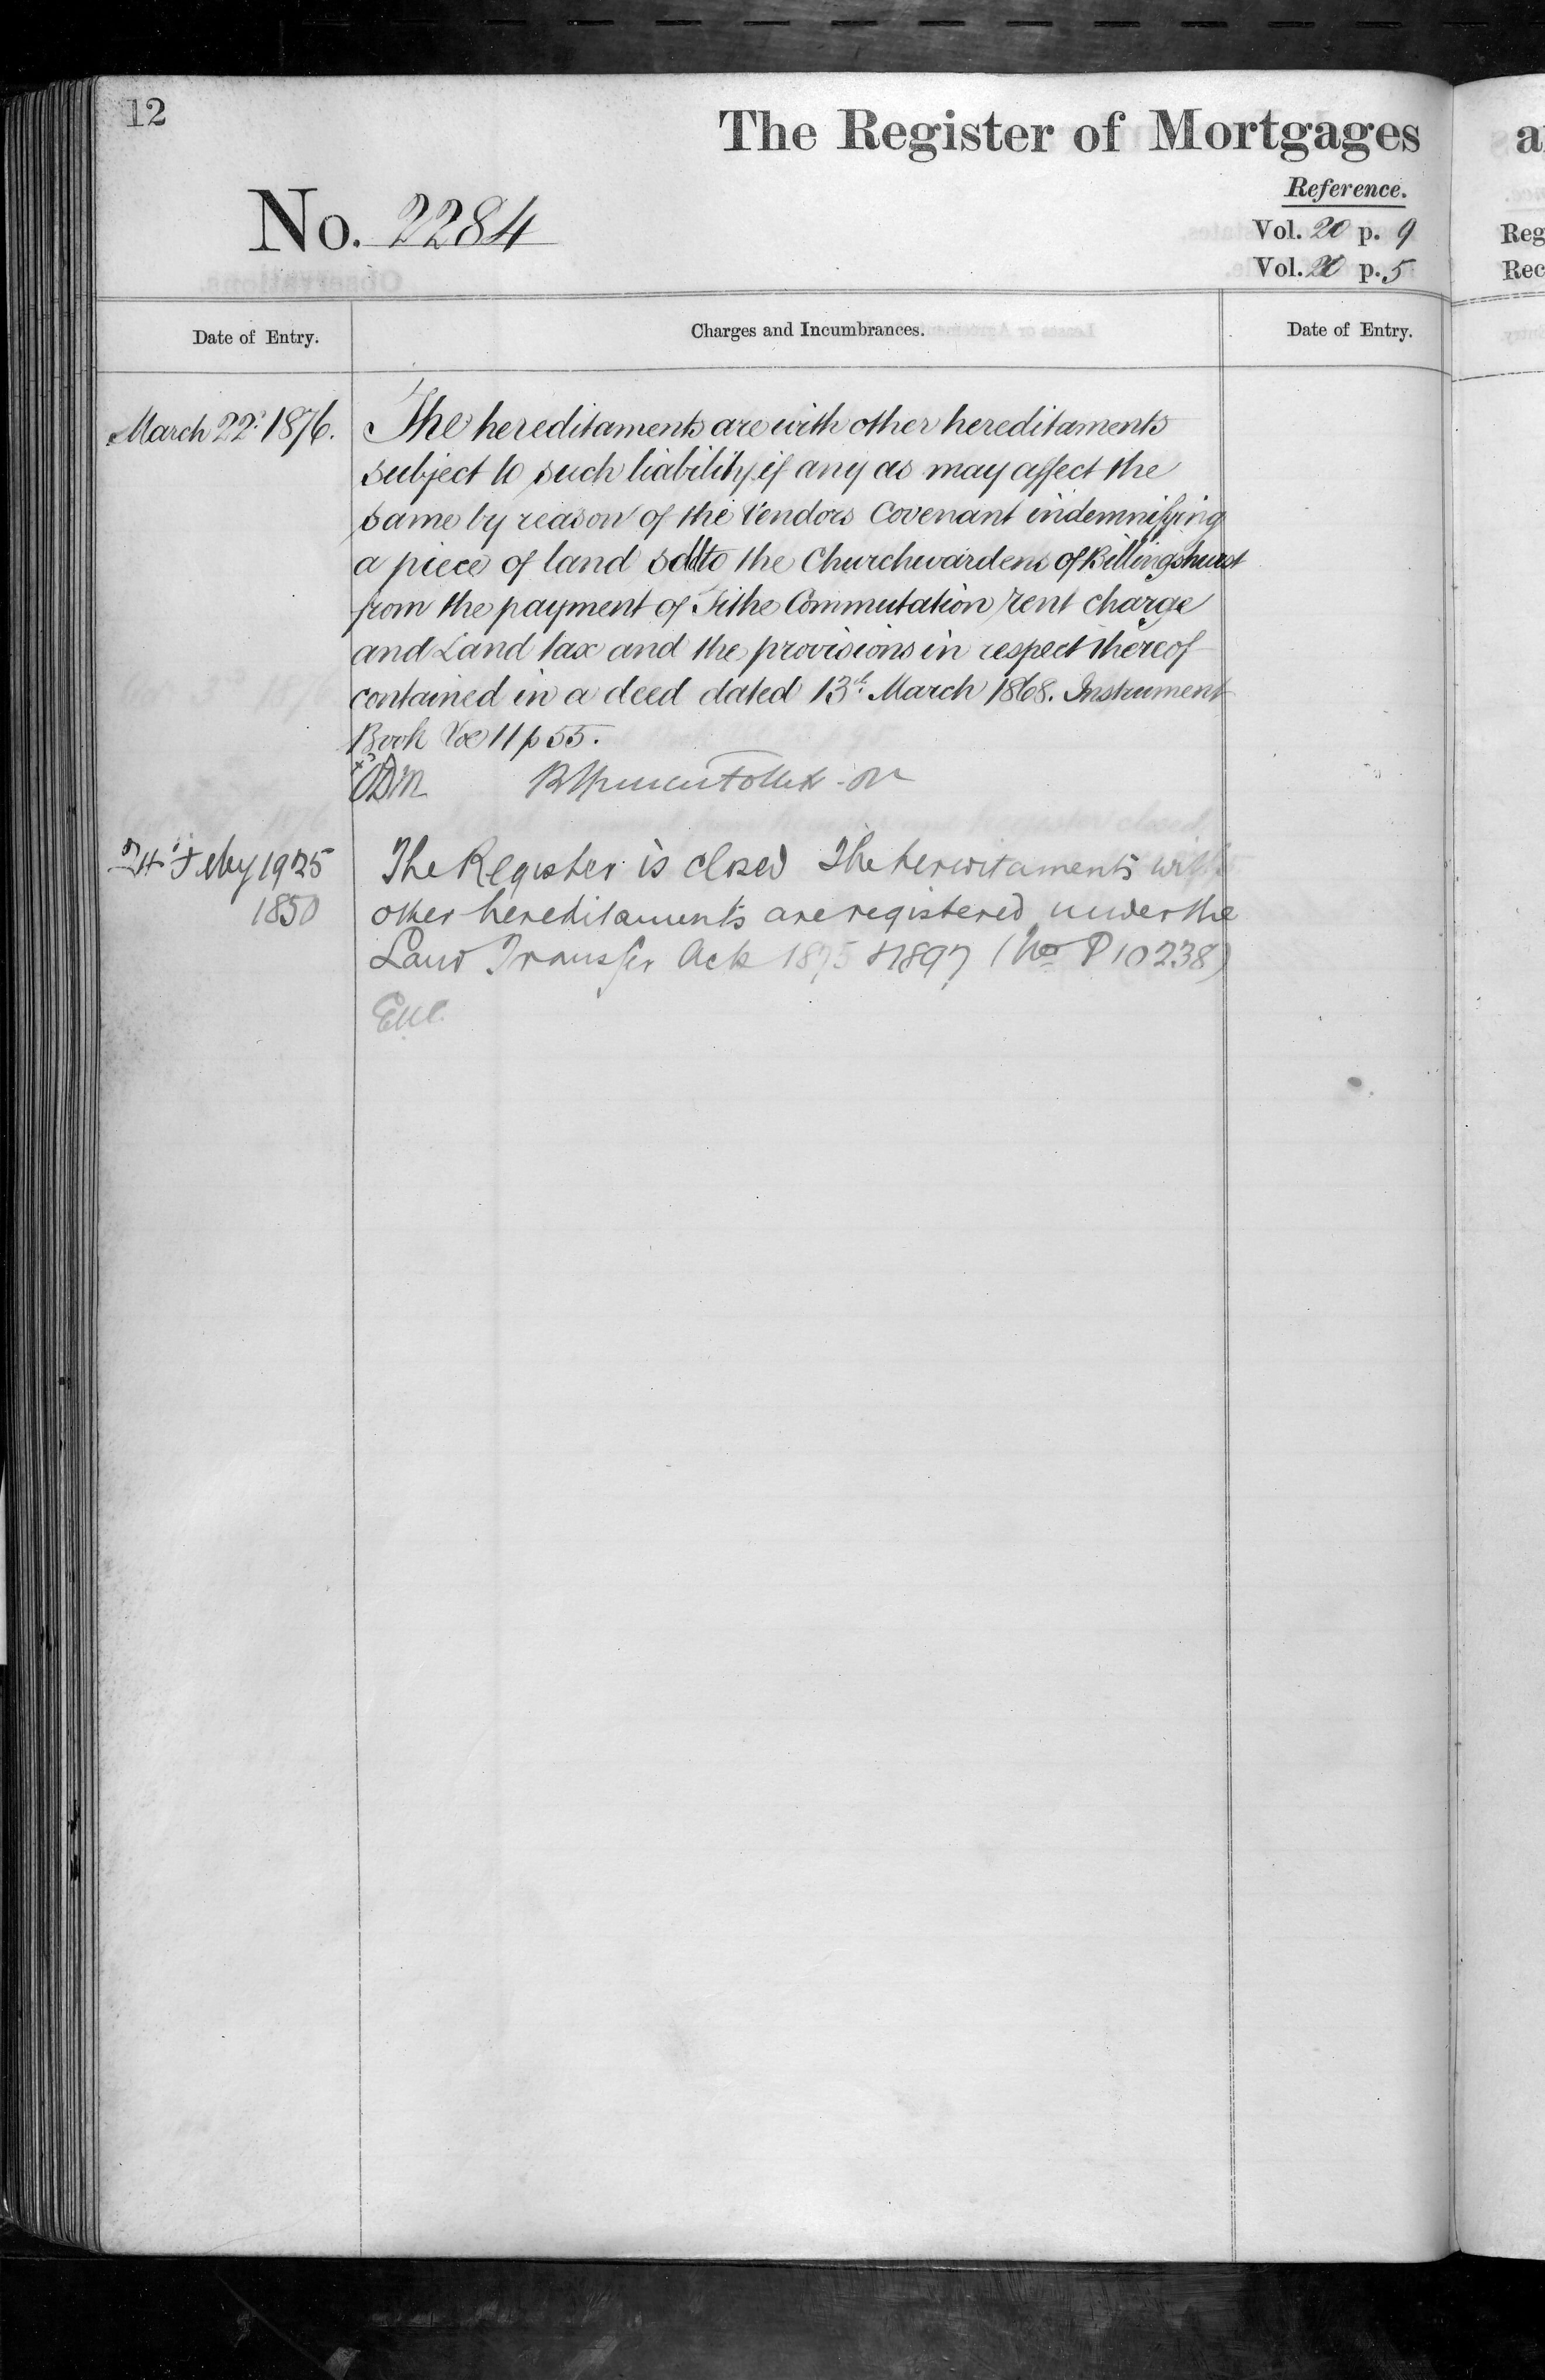 12
The Register of Mortgages
Reference.
No. 2284
Vol. 20 p. 9
Vol. 20 p. 5
Date of Entry.
Charges and Incumbrances.
Date of Entry.
March 22d 1876.
The hereditaments are with other hereditaments
subject to such liability if any as may affect the
same by reason of the Vendors Covenant indemnifying
a piece of land sold to the Churchwardens of Billingshurst
from the payment of Tithe Commutation rent charge
and Land tax and the provisions in respect thereof
contained in a deed dated 13th March 1868. Instrument
Book Vol 11 p 55.
24th Feby 1925
1850
The Register is closed The hereditaments with
other hereditaments are registered under the
Land Transfer Acts 1875 & 1897 (No P 10238)
a
Reg
Rec